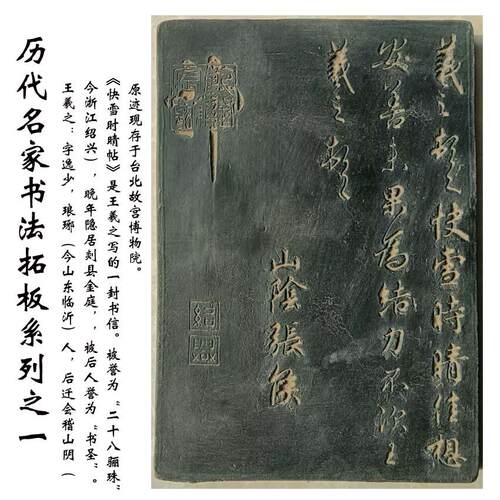 历代名家书法拓板系列之一
王羲之：字逸少，琅琊（今山东临沂）人，后迁会稽山阴（
今浙江绍兴），晚年隐居剡县金庭，，被后人誉为“书圣”。
《快雪时晴帖》是王羲之写的一封书信。被誉为“二十八骊珠”
原迹现存于台北故宫博物院。
羲之頓首快雪時晴佳想
安善未果為結力不次王
羲之頓首
山陰張侯